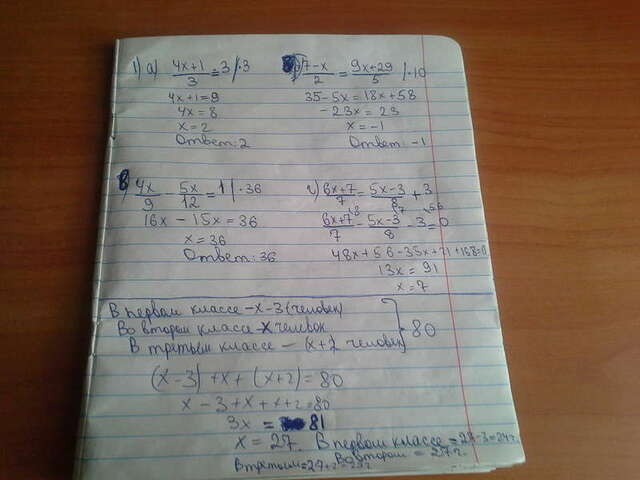 1) а) 4x+1/3 = 3 |·3
4x+1=9
4x=8
x=2
Ответ: 2
7-x/2 = 9x+29/5 |·10
35-5x=18x+58
-23x=23
x=-1
Ответ: -1
в) 4x/9 - 5x/12 = 1 |·36
16x-15x=36
x=36
Ответ: 36
г) 6x+7/7 = 5x-3/8 + 3
6x+7/7 - 5x-3/8 - 3 = 0
48x+56-35x+21+168=0
13x=91
x=7
В первом классе - x-3 (человек)
Во втором классе - x человек
В третьем классе - (x+2 человек)
80
(x-3)+x+(x+2)=80
x-3+x+x+2=80
3x = 81
x=27. В первом классе =27-3=24ч.
Во втором =27ч.
В третьем=27+2=29ч.